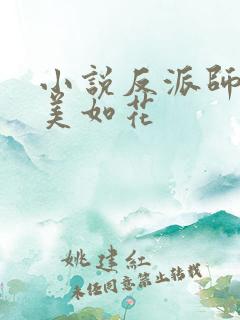 小說反派師
美如花
姚建紅
未任同意禁止转载